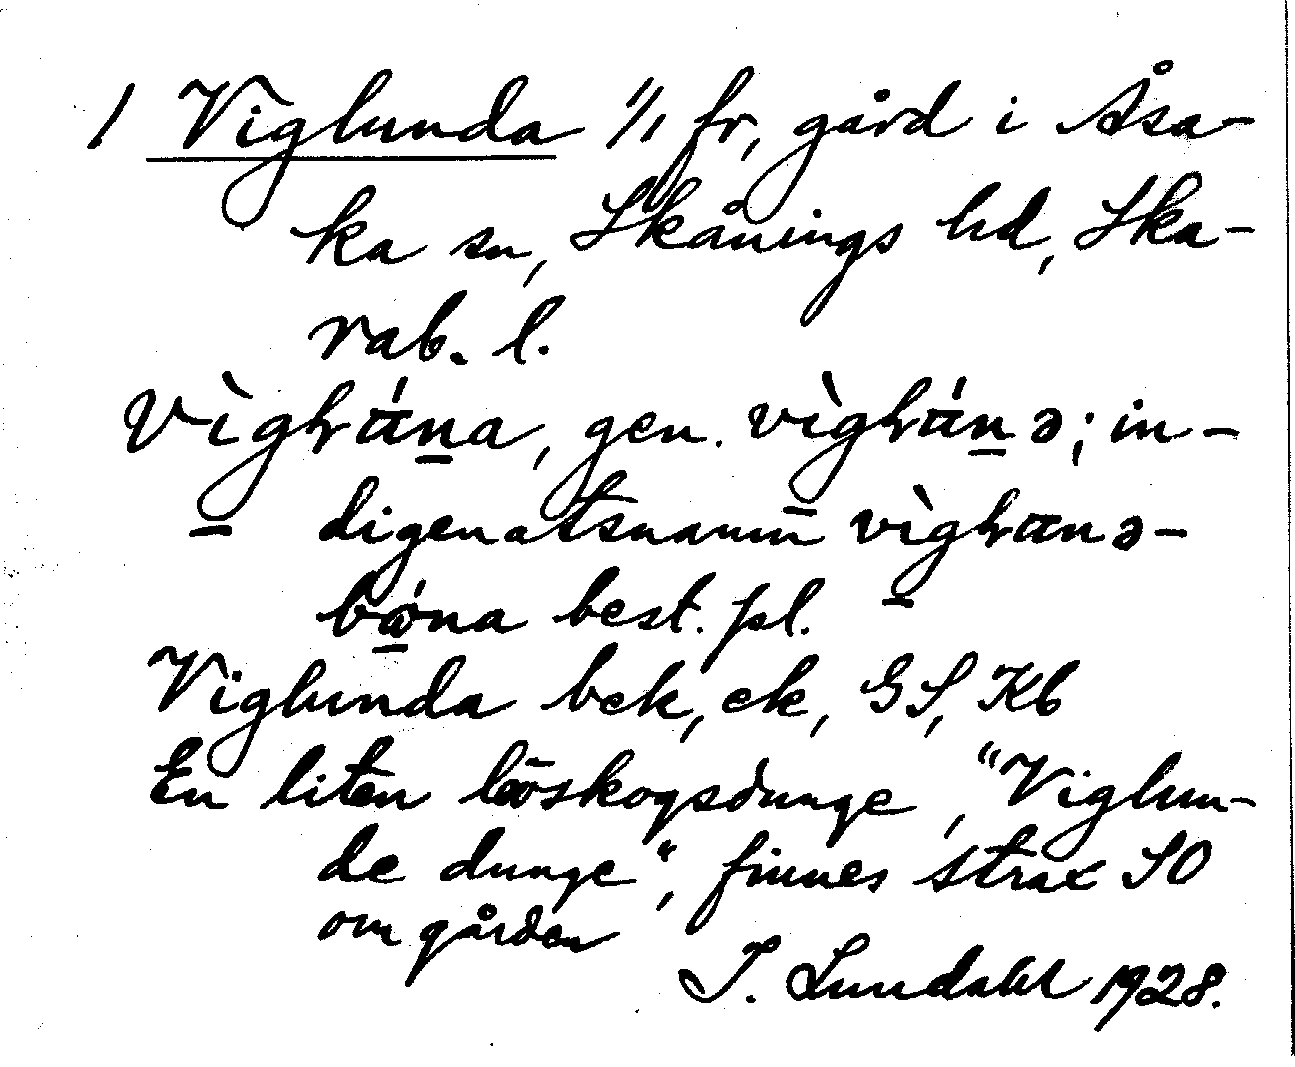 1 Viglunda 1/1 fr, gård i Åsa-
ka sn, Skånings hd, Ska-
rab. l.
vìglιáṉa, gen. vìglιáṉə; in-
digenatsnamn vìglιanə-
bǿna best. pl.
Viglunda bek, ek, GS, Kb
En liten lövskogsdunge, "Viglun-
de dunge", finnes strax SO
om gården
I. Lundahl 1928.